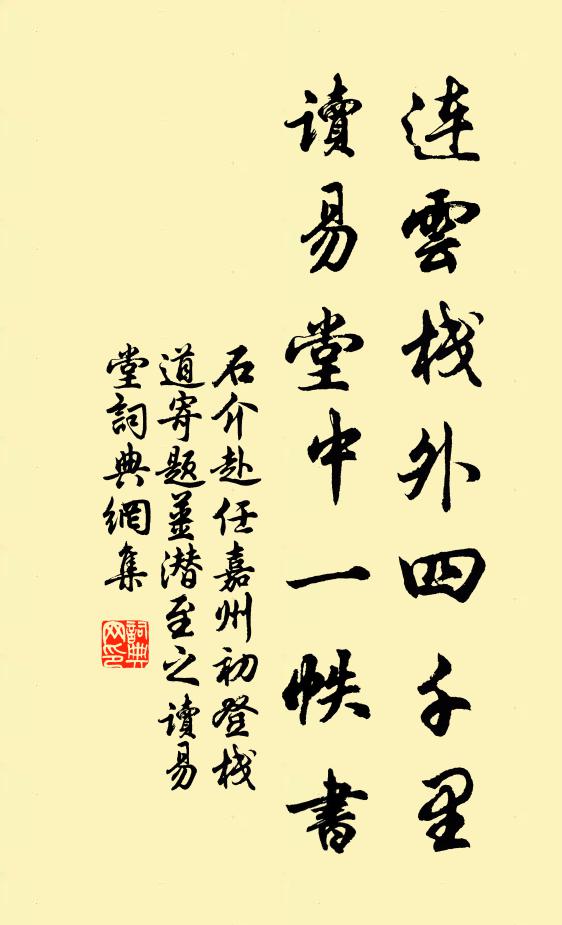 連雲棧外四千里
讀易堂中一帙書
石介赴任嘉州初登棧
道寄題姜潜至之讀易
堂詞典網集
詞典
网印